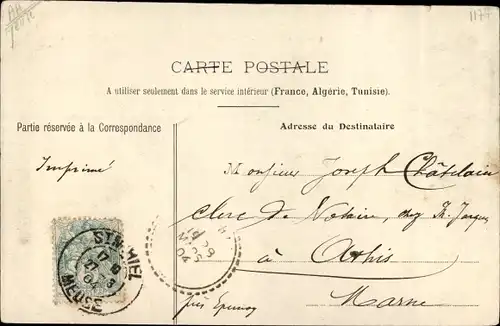 1177
CARTE POSTALE
A utiliser seulement dans le service intérieur (France, Algérie, Tunisie).
Partie réservée à la Correspondance
Adresse du Destinataire
Imprimé
Monsieur Joseph Châtelain
clerc de Notaire, chez Th. Jacques
à Athis
Marne
près Epernay
ST MIHIEL
MEUSE